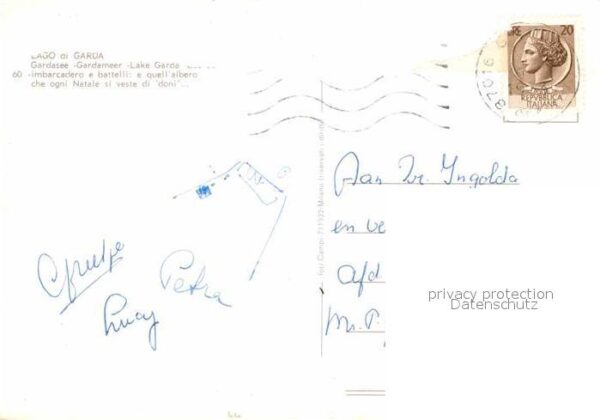 LAGO di GARDA
Gardasee - Gardameer - Lake Garda
60 - imbarcadero e battelli: e quell'albero
che ogni Natale si veste di "doni"...
20
REPUBBLICA
ITALIANA
37016
Aan Zr. Ingolda
en ve
Afd
Mr. P.
privacy protection
Datenschutz
Petra
Lucy